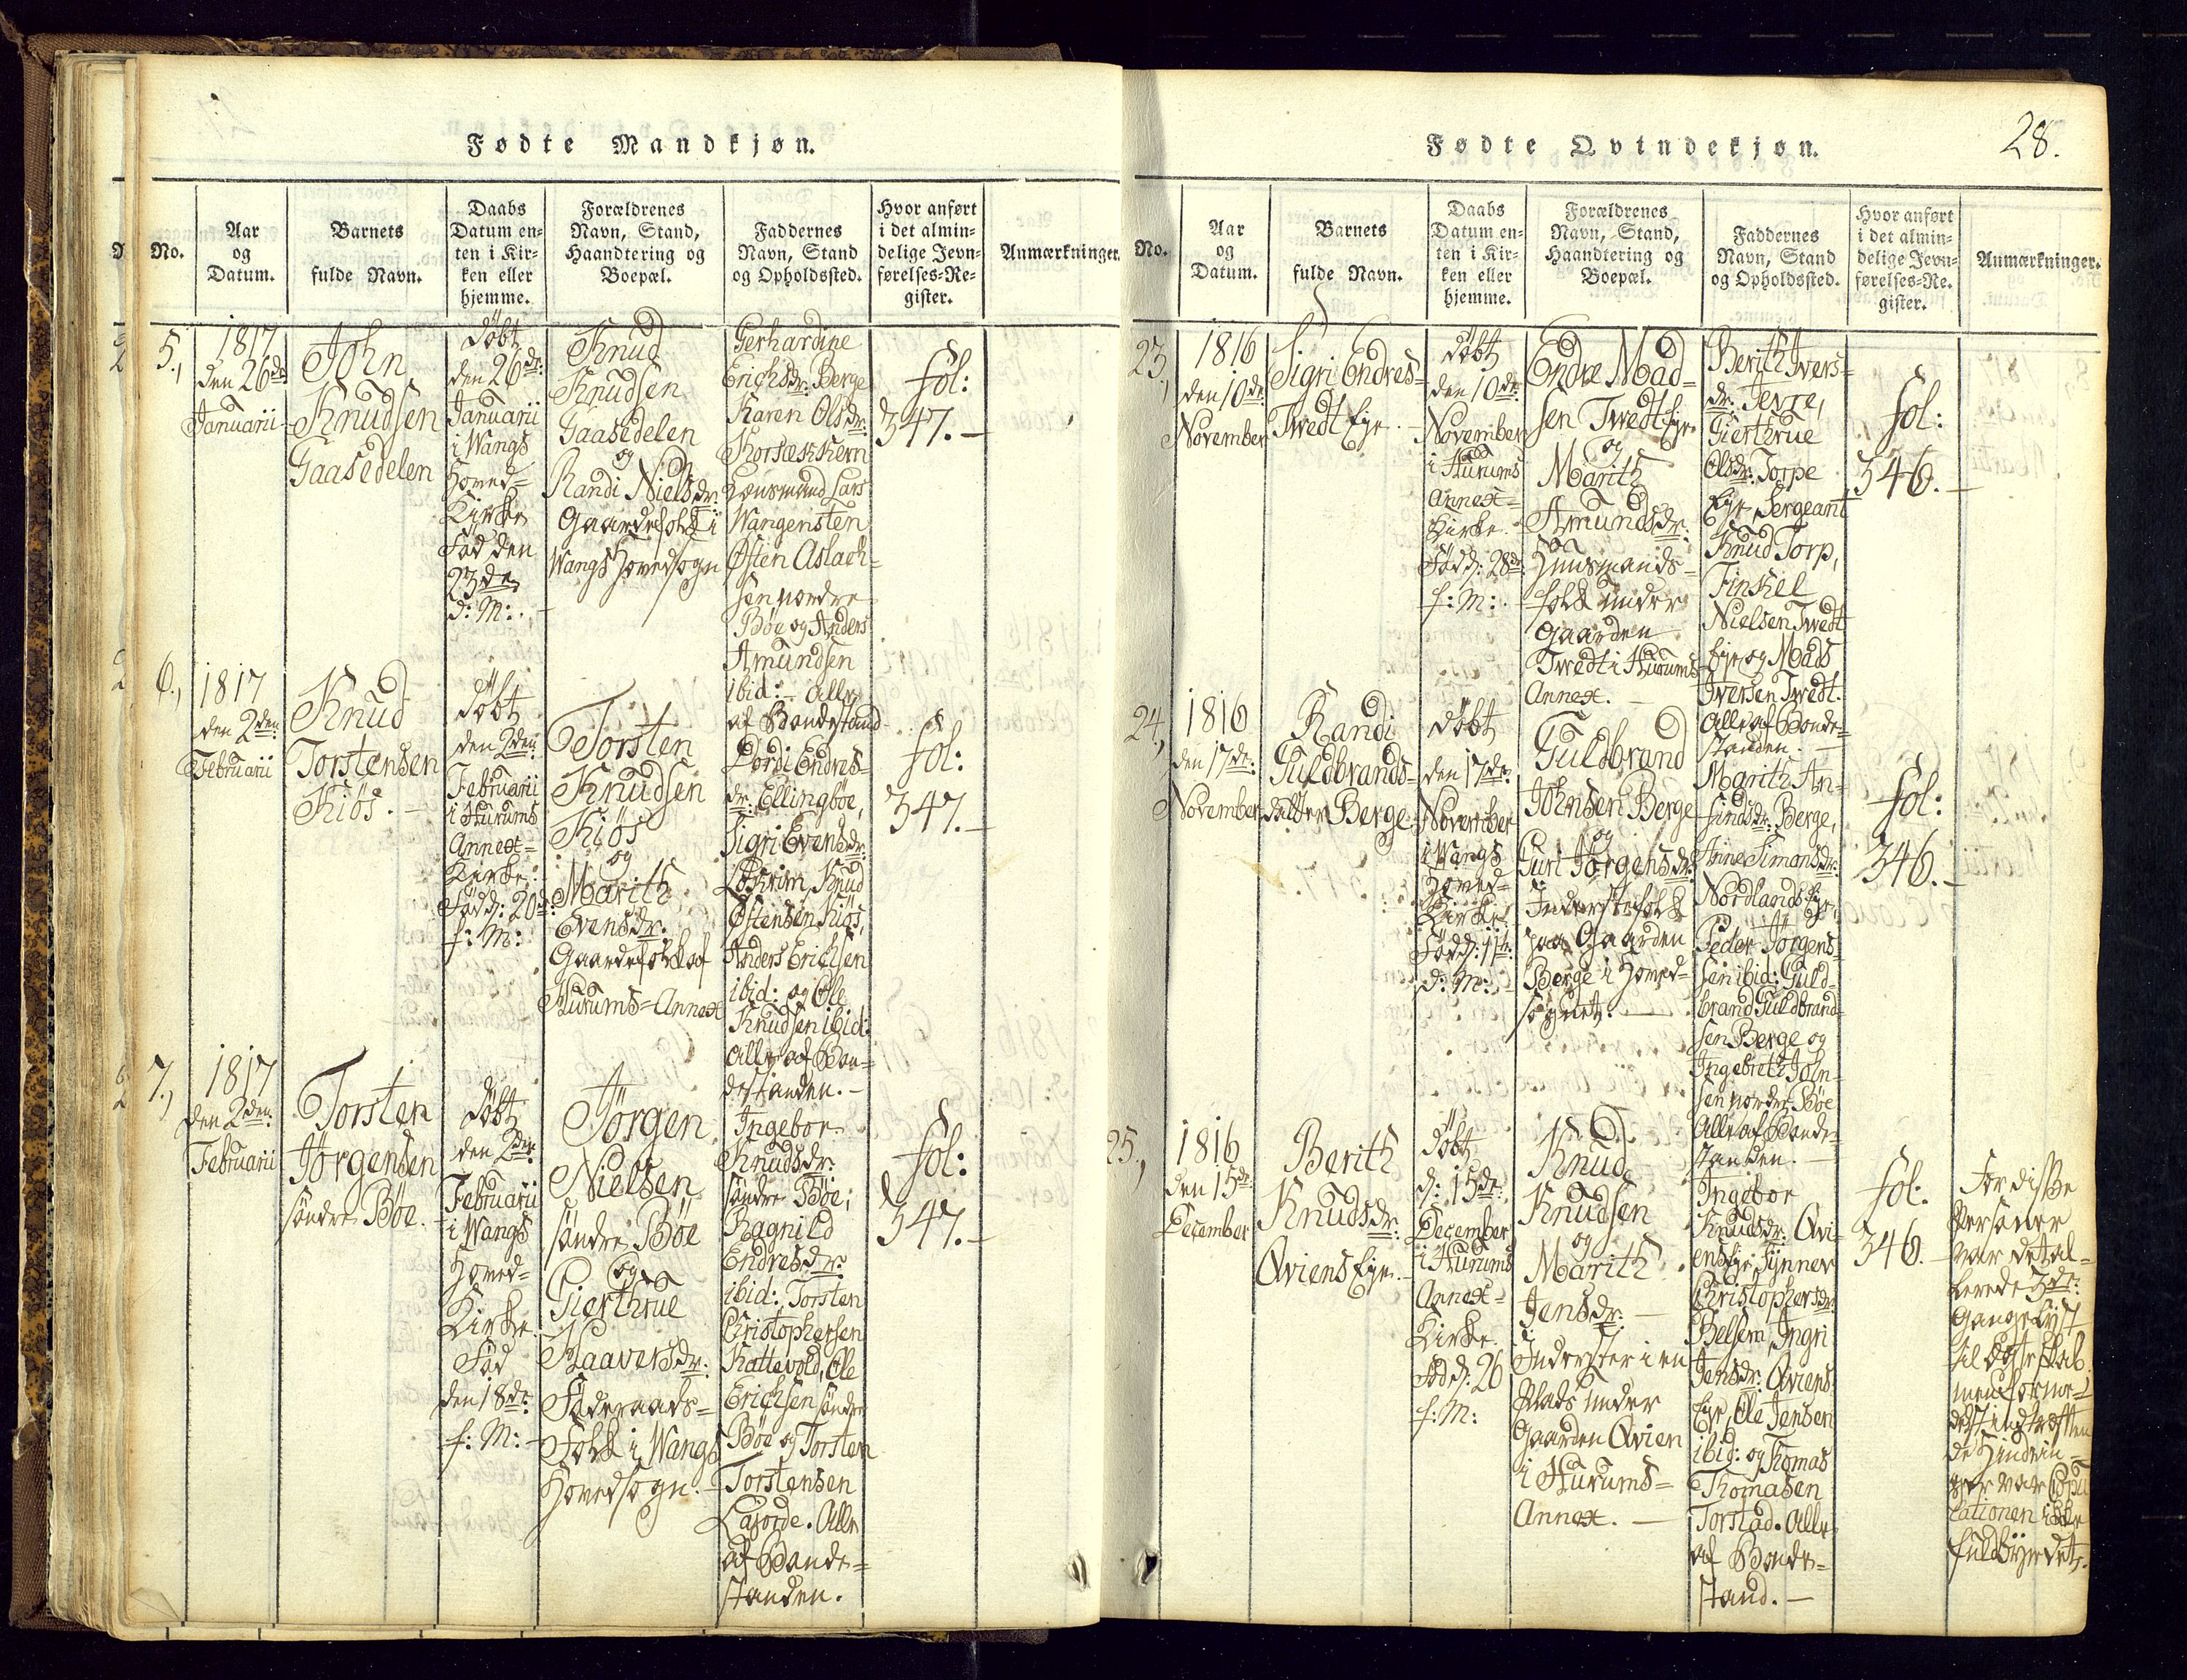 Fødte Mandkjøn.
No.
Aar
og
Datum.
Barnets
fulde Navn.
Daabs
Datum en-
ten i Kir-
ken eller
hjemme.
Forældrenes
Navn, Stand,
Haandtering og
Boepæl.
Faddernes
Navn, Stand
og Opholdssted.
Hvor anført
i det almin-
delige Jevn-
førelses-Re-
gister.
Anmærkninger.
5.,
1817
den 26de
Januarii
John
Knudsen
Gaasedelen
döbt
den 26de:
Januarii
i Wangs
Hoved=
Kirke
Fød den
23de
d: M: . -
Knud
Knudsen
Gaasedelen
og
Randi Nielsdr.
Gaardefolk i
Wangs Hovedsogn
Gerhardine
Erichsdr: Berge
Karen Olsdr:
Lars
Wangensten
Østen Aslach-
sen nordre
Böe og Anders
Amundsen
ibid: - Alle
af Bondestand
fol:
347. -
6.,
1817
den 2den:
Februarii
Knud
Torstensen
Kiös. -
döbt
den 2den:
Februarii
i Hurums
Annext=
Kirke:
Fød d: 20de:
f: M:
Torsten
Knudsen
Kiös
og
Marith
Evensdr.
Gaardefolk af
Hurums=Annext
Dordi Endres=
dr: Ellingböe,
Sigri Evensdr:
Knud
Östensen Kiös,
Anders Erichsen
ibid: og Ole
Knudsen ibid:
Alle af Bon=
destanden. -
fol:
347. -
7.,
1817
den 2den:
Februarii
Torsten
Jörgensen
søndre Böe. -
döbt
den 2den:
Februarii
i Wangs
Hoved=
Kirke.
Fød
den 18de:
f: M: -
Jörgen
Nielsen
søndre Böe
og
Gierthrue
Haaversdr:
Föderaads=
Folk i Wangs
Hovedsogn. -
Ingebor
Knudsdr:
søndre Böe;
Ragnild
Endresdr:
ibid: Torsten
Christophersen
Kattevold, Ole
Erichsen søndre
Böe og Torsten
Torstensen
Alle
af Bonde=
standen.
fol:
347. -
28.
Fødte Qvindekjøn.
No.
Aar
og
Datum.
Barnets
fulde Navn.
Daabs
Datum en-
ten i Kir-
ken eller
hjemme.
Forældrenes
Navn, Stand,
Haandtering og
Boepæl.
Faddernes
Navn, Stand
og Opholdssted.
Hvor anført
i det almin-
delige Jevn-
førelses-Re-
gister.
Anmærkninger.
23.,
1816
den 10de:
November
Sigri Endres=
Twedt Eye. -
döbt
den 10de:
November
i Hurums
Annext=
Kirke.
Fød d: 28de:
f: M: . -
Endre Mad=
sen Twedt Eye.
og
Marith
Amundsdr:
Huusmands=
folk under
Gaarden
Twedt i Hurums
Annext. -
Berith Ivers=
dr: Jevre,
Gierthrue
Olsdr: Torpe
Eye, Sergeant
Knud Torp,
Tinkel
Nielsen Twedt
Eye, og Mads
Iversen Twedt.
Alle af Bonde=
standen. -
fol:
346. -
24.,
1816
den 17de:
November
Randi
Guldbrands=
datter Berge
döbt
den 17de:
November
i Wangs
Hoved=
Kirke
Fød d: 11te:
d: M: -
Guldbrand
Johnsen Berge
og
Guri Jörgensdr:
Inderstefolk
paa Gaarden
Berge i Hoved=
sognet. -
Marith An=
findsdr: Berge,
Anne Simansdr:
Nordlands Eye,
Peder Jörgens=
sen ibid: Guld=
brand Guldbrand=
sen Berge og
Ingebreth John=
sen nordre Böe
Alle af Bonde=
standen. -
fol:
346. -
25.,
1816
den 15de
December
Berith
Knudsdr:
Qviens Eye. -
döbt
d: 15de:
December
i Hurums
Annext=
Kirke.
Fød d: 26
f: M:
Knud
Knudsen
og
Marith
Jensdr: -
Inderster i en
Plads under
Gaarden Qvien
i Hurums=
Annext. -
Ingebor
Knudsdr: Qvi=
ens Eye, Synnev
Christophersdr:
Belsem, Ingri
Jensdr: Qviens
Eye, Ole Jensen
ibid: og Thomas
Thomasen
Torstad. Alle
af Bonde=
stand. -
fol:
346. -
For disse
Personer
var det al=
lerede 3de:
Gange lyst
til Egteskab
men formе=
delst indtrufne
de Hindrin=
ger var Copu
lationen ikke
fuldbyrdet.